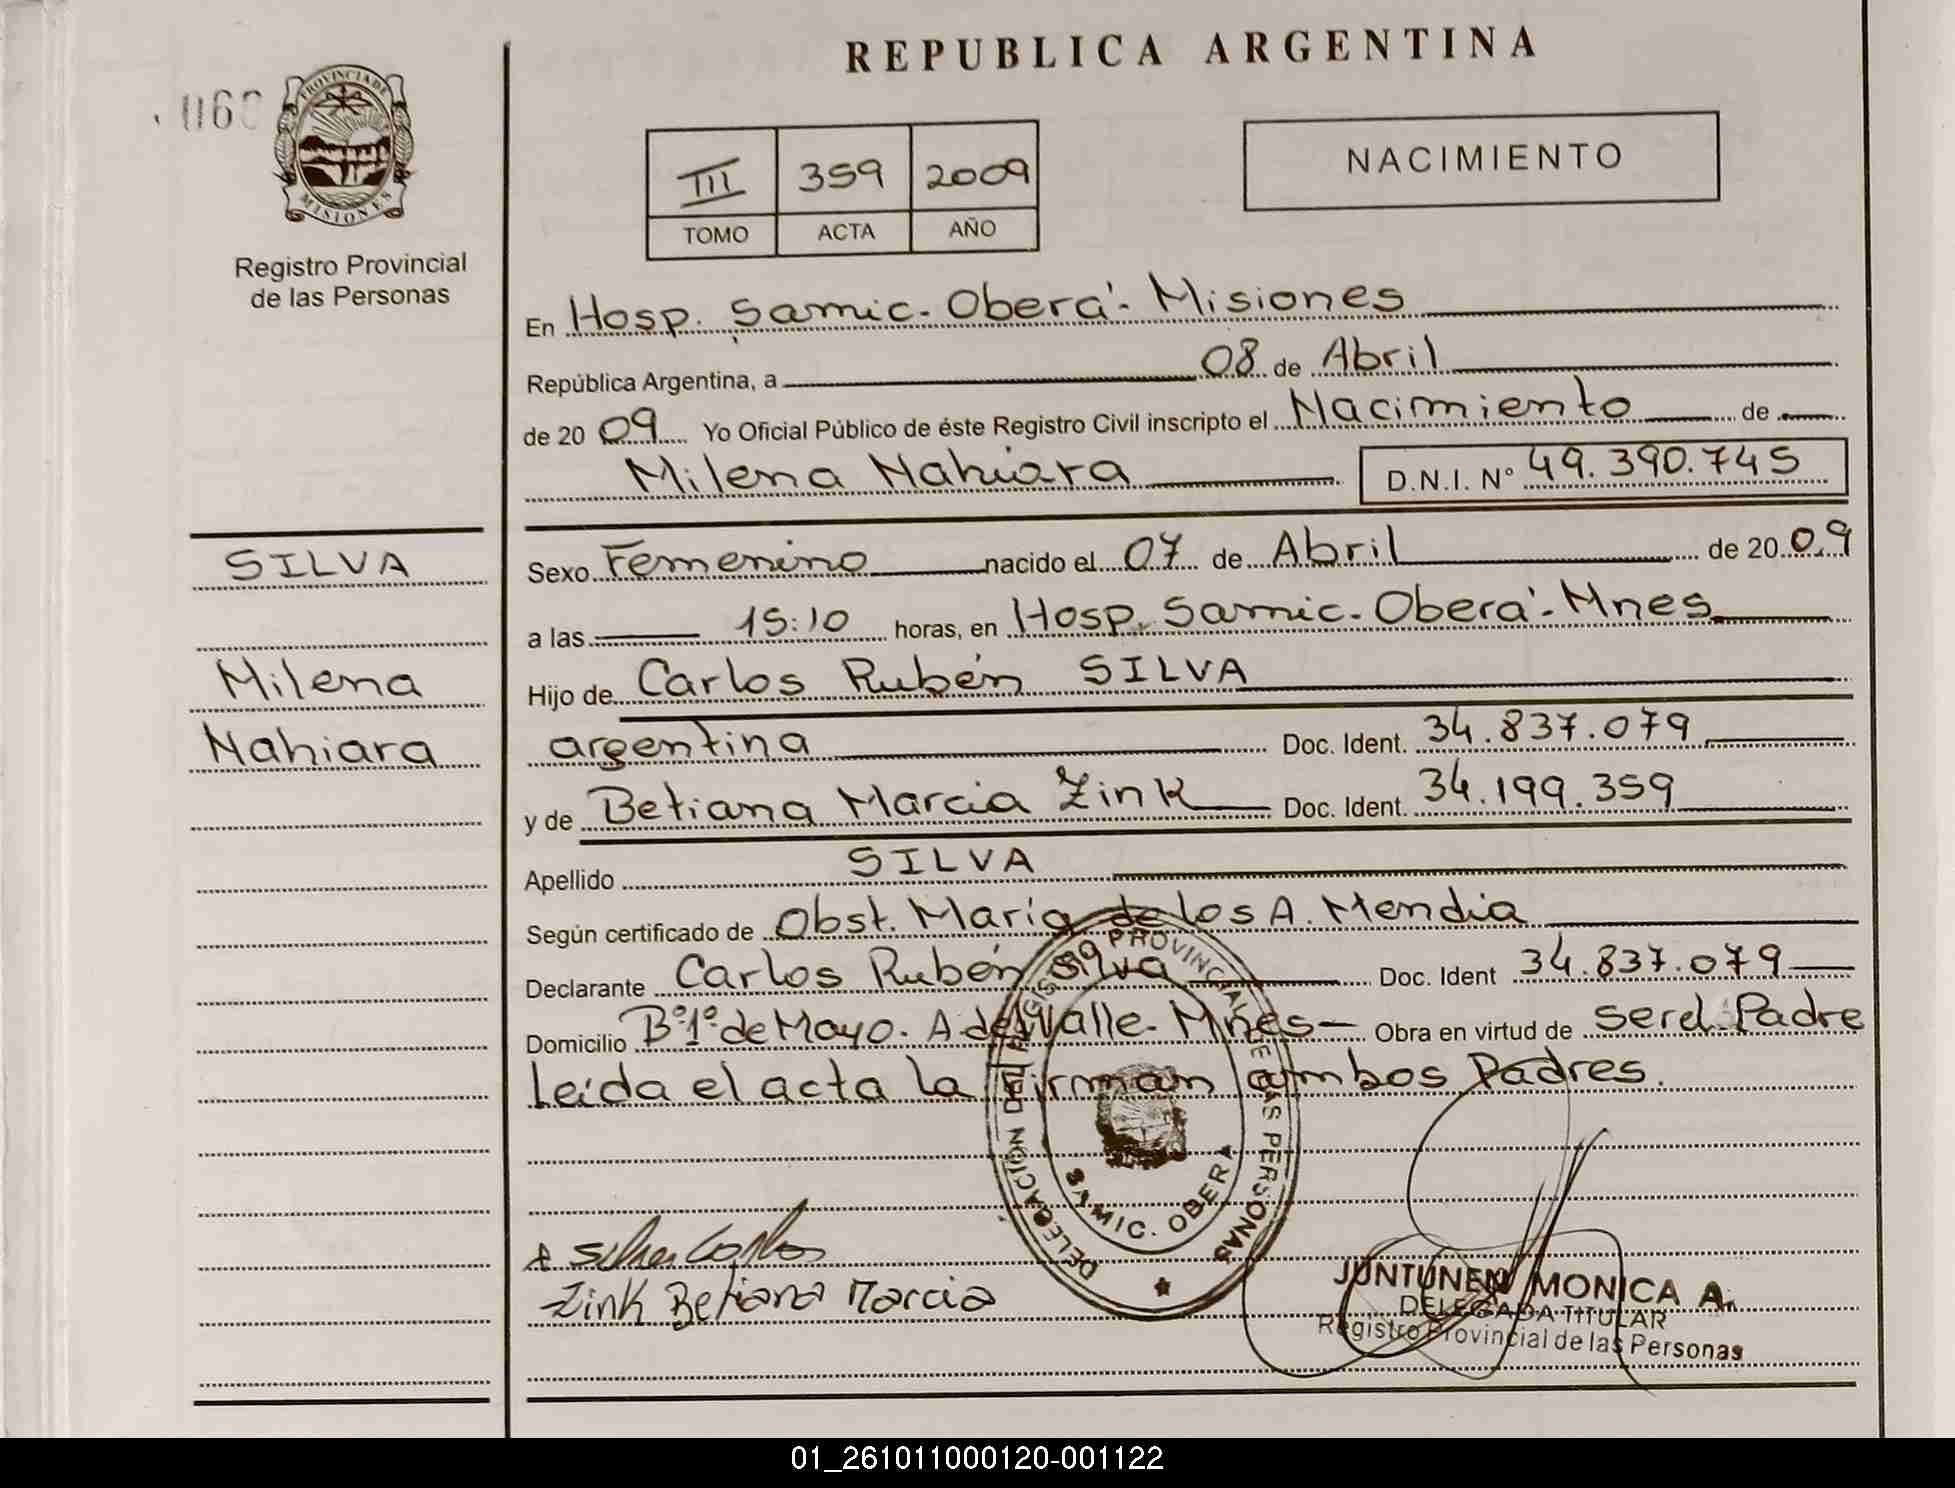 REPUBLICA ARGENTINA
PROVINCIA DE
MISIONES
Registro Provincial
de las Personas
III 359 2009
TOMO ACTA AÑO
NACIMIENTO
En Hosp. Samic. Oberá. Misiones
República Argentina, a 08 de Abril
de 20 09 Yo Oficial Público de éste Registro Civil inscripto el Nacimiento de
Milena Nahiara D.N.I. Nº 49.390.745
SILVA
Milena
Nahiara
Sexo Femenino nacido el 07 de Abril de 20 09
a las 15:10 horas, en Hosp. Samic. Oberá. Mnes
Hijo de Carlos Rubén SILVA
argentina Doc. Ident. 34.837.079
y de Betiana Marcia Zink Doc. Ident. 34.199.359
Apellido SILVA
Según certificado de Obst. María de los A. Mendia
Declarante Carlos Rubén Silva Doc. Ident 34.837.079
Domicilio Bº1º de Mayo. A del Valle. Mnes Obra en virtud de ser el Padre
Leída el acta la firman ambos Padres.
DELEGACION DEL REGISTRO PROVINCIAL DE LAS PERSONAS
SAMIC. OBERA
Zink Betiana Marcia
JUNTUNEN MONICA A.
DELEGADA TITULAR
Registro Provincial de las Personas
01_261011000120-001122